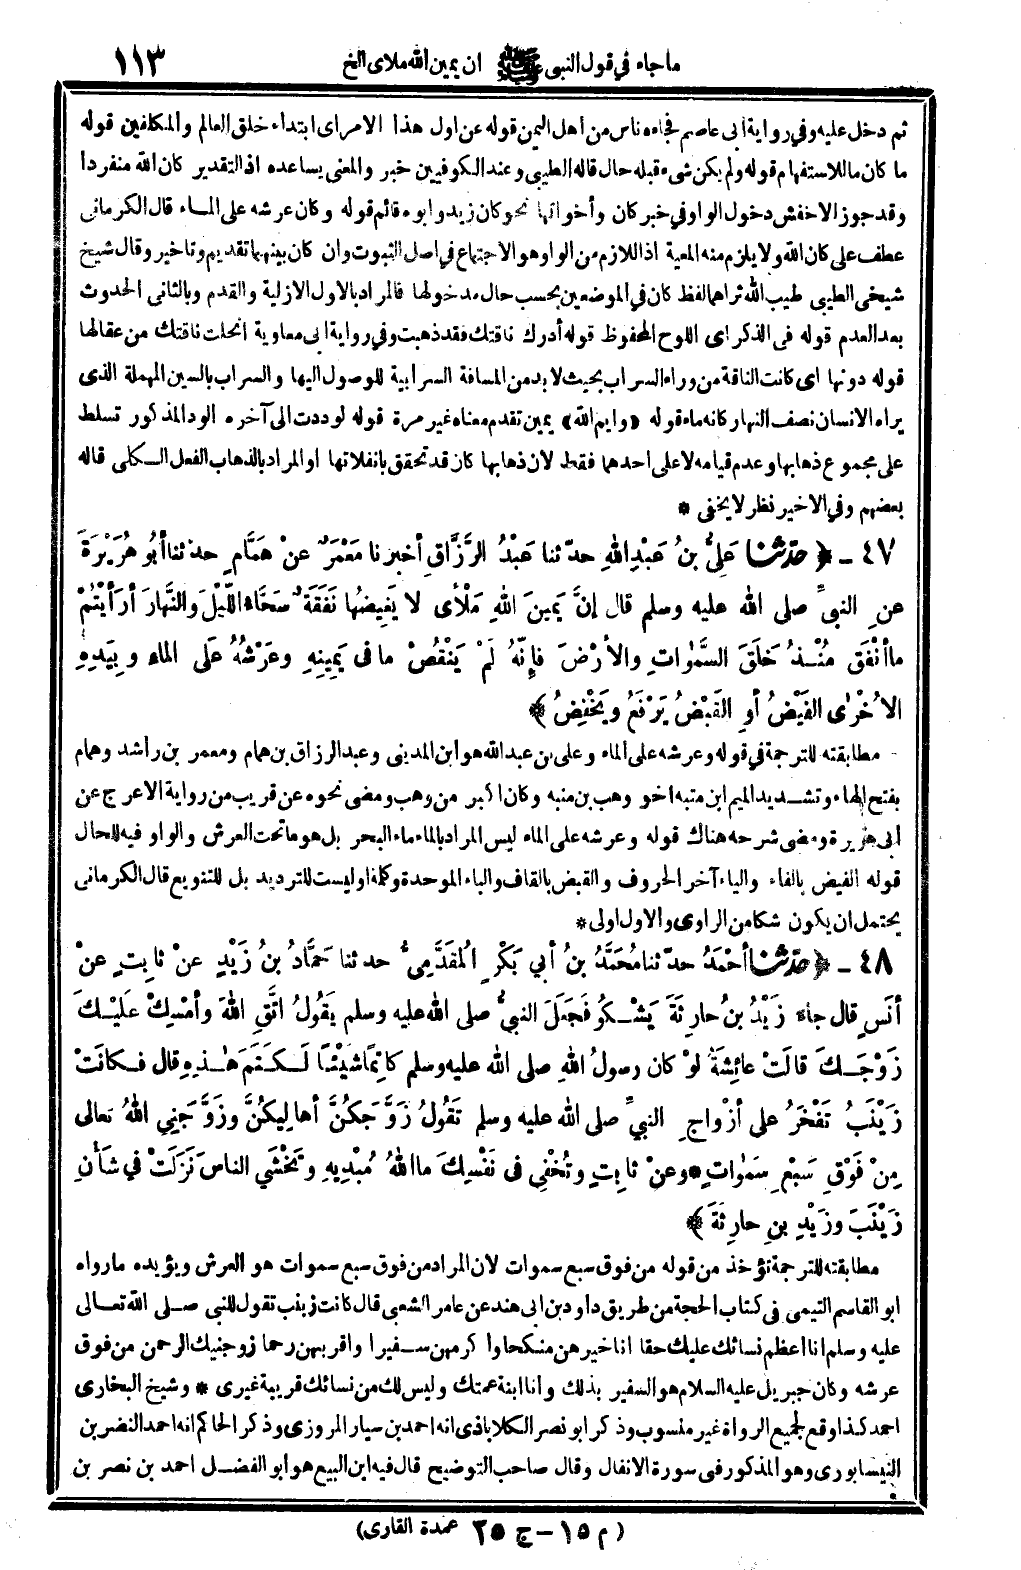 ما جاء في قول النبي ﷺ ان يمين الله ملاى الخ ١١٣
ثم دخل عليه وفي رواية أبى عاصم فجاءه ناس من أهل اليمن قوله عن اول هذا الامر اى ابتداء خلق العالم والمكلفين قوله
ما كان ما للاستفهام قوله ولم يكن شىء قبله حال قاله الطيبى وعند الكوفيين خبر والمعنى يساعده اذ التقدير كان الله منفردا
وقد جوز الاخفش دخول الواو في خبر كان وأخواتها نحو كان زيد وابوه قائم قوله وكان عرشه على الماء قال الكرمانى
عطف على كان الله ولا يلزم منه المعية اذ اللازم من الواو هو الاجتماع في اصل الثبوت وان كان بينهما تقديم وتاخير وقال شيخ
شيخى الطيبى طيب الله ثراهما لفظ كان في الموضعين بحسب حال مدخولها فالمراد بالاول الازلية والقدم وبالثانى الحدوث
بعد العدم قوله فى الذكر اى اللوح المحفوظ قوله أدرك ناقتك فقد ذهبت وفي رواية ابى معاوية انحلت ناقتك من عقالها
قوله دونها اى كانت الناقة من وراء السراب بحيث لا بد من المسافة السرابية للوصول اليها والسراب بالسين المهملة الذى
يراه الانسان نصف النهار كانه ماء قوله «وايم الله» يمين تقدم معناه غير مرة قوله لوددت الى آخره الود المذكور تسلط
على مجموع ذهابها وعدم قيامه لا على احدهما فقط لان ذهابها كان قد تحقق بانفلاتها او المراد بالذهاب الفعل الكلى قاله
بعضهم وفي الاخير نظر لا يخفى *
٤٧ - ﴿ حدّثنا عَلِىُّ بنُ عَبْدِ اللهِ حدّثنا عَبْدُ الرَّزَّاقِ أخبرنا مَعْمَرٌ عنْ هَمَّامٍ حدثنا أبُو هُرَيْرَةَ
عنِ النبىِّ صلى الله عليه وسلم قال إنَّ يَمِينَ اللهِ مَلْأى لا يَغِيضُها نَفَقَةٌ سَحَّاءُ اللّيْلَ والنَّهارَ أرَأيْتُمْ
ما أنْفَقَ مُنْذُ خَلَقَ السَّمٰوَاتِ والأرْضَ فإنّهُ لَمْ يَنْقُصْ ما فى يَمِينِهِ وعَرْشُهُ على الماءِ وبِيَدِهِ
الأُخْرٰى الفَيْضُ أوِ القَبْضُ يَرْفَعُ ويَخْفِضُ * ﴾
- مطابقته للترجمة في قوله وعرشه على الماء وعلى بن عبد الله هو ابن المدينى وعبد الرزاق بن همام ومعمر بن راشد وهمام
بفتح الهاء وتشديد الميم ابن منبه اخو وهب بن منبه وكان اكبر من وهب ومضى نحوه عن قريب من رواية الاعرج عن
ابى هريرة ومضى شرحه هناك قوله وعرشه على الماء ليس المراد بالماء ماء البحر بل هو ما تحت العرش والواو فيه للحال
قوله الفيض بالفاء والياء آخر الحروف والقبض بالقاف والباء الموحدة وكلمة او ليست للترديد بل للتنويع قال الكرمانى
يحتمل ان يكون شكا من الراوى والاول اولى *
٤٨ - ﴿ حدّثنا أحْمَدُ حدّثنا مُحَمَّدُ بنُ أبي بَكْرٍ المُقَدَّمِىُّ حدثنا حَمَّادُ بنُ زَيْدٍ عنْ ثابِتٍ عنْ
أنَسٍ قال جاءَ زَيْدُ بنُ حارِثَةَ يَشْكُو فَجَعَلَ النبىُّ صلى الله عليه وسلم يَقُولُ اتَّقِ اللهَ وأمْسِكْ عَلَيْكَ
زَوْجَكَ قالَتْ عائِشَةُ لوْ كان رسولُ اللهِ صلى الله عليه وسلم كاتِمًا شَيْئًا لَكَتَمَ هٰذِهِ قال فَكانَتْ
زَيْنَبُ تَفْخَرُ على أزْواجِ النبىِّ صلى الله عليه وسلم تَقُولُ زَوَّجَكُنَّ أهالِيكُنَّ وزَوَّجَنِي اللهُ تعالى
مِنْ فَوْقِ سَبْعِ سَمٰوَاتٍ * وعنْ ثابِتٍ وتُخْفِى فى نَفْسِكَ ما اللهُ مُبْدِيهِ وتَخْشَي الناسَ نَزَلَتْ في شَأْنِ
زَيْنَبَ وزَيْدِ بنِ حارِثَةَ * ﴾
مطابقته للترجمة تؤخذ من قوله من فوق سبع سموات لان المراد من فوق سبع سموات هو العرش ويؤيده ما رواه
ابو القاسم التيمى فى كتاب الحجة من طريق داود بن ابى هند عن عامر الشعبى قال كانت زينب تقول للنبى صلى الله تعالى
عليه وسلم انا اعظم نسائك عليك حقا انا خيرهن منكحا واكرمهن سفيرا واقربهن رحما زوجنيك الرحمن من فوق
عرشه وكان جبريل عليه السلام هو السفير بذلك وانا ابنة عمتك وليس لك من نسائك قريبة غيرى * وشيخ البخارى
احمد كذا وقع لجميع الرواة غير منسوب وذكر ابو نصر الكلاباذى انه احمد بن سيار المروزى وذكر الحاكم انه احمد النضر بن
النيسابورى وهو المذكور فى سورة الانفال وقال صاحب التوضيح قال فيه ابن البيع هو ابو الفضل احمد بن نصر بن
( م ١٥ - ج ٢٥ عمدة القارى )